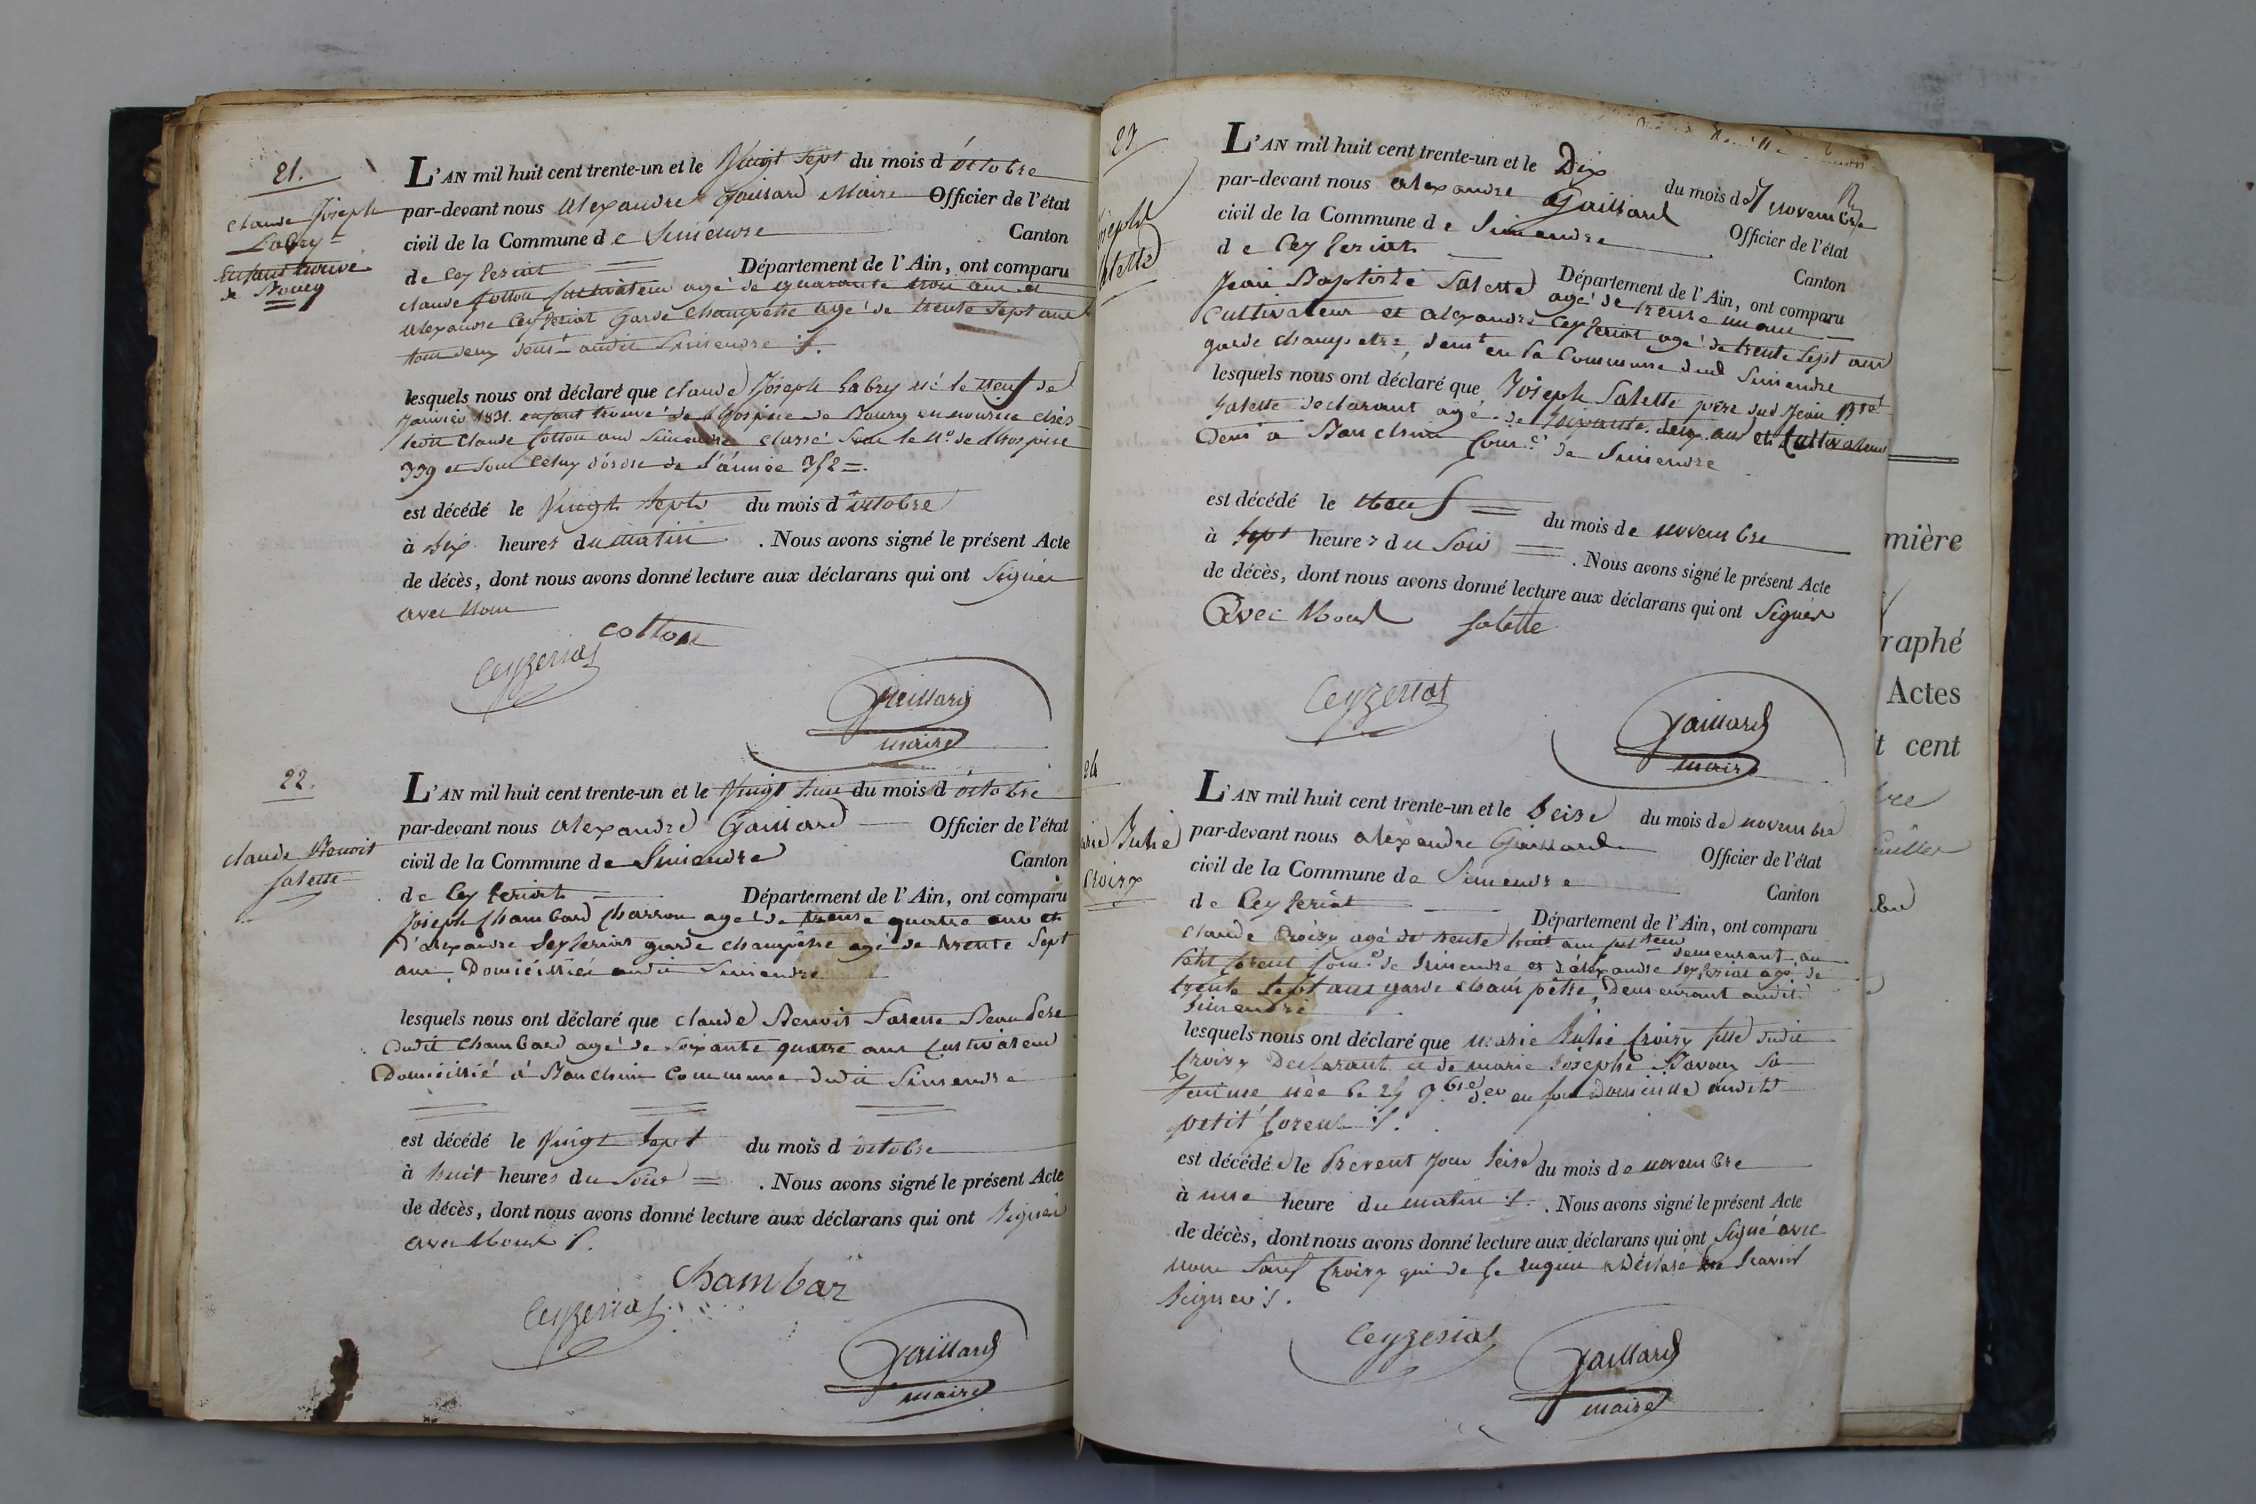 21.
Claude Joseph
Labry
Enfant trouvé
de Bourg
L'AN mil huit cent trente-un et le Vingt sept du mois d'octobre
par-devant nous Alexandre Gaillard Maire Officier de l'état
civil de la Commune de Simendre Canton
de Ceyzeriat Département de l'Ain, ont comparu
Claude Cottou Cultivateur agé de quarante trois ans et
Alexandre Ceyzeriat Garde Champetre agé de trente sept ans
tous deux demt audit Simendre
lesquels nous ont déclaré que Claude Joseph Labry né le neuf de
Janvier 1831. enfant trouvé de l'hospice de Bourg en nourice chés
ledit Claude Cottou aud Simendre classé sous le No de l'hospice
339 et sous celuy d'ordre de l'année 352
est décédé le Vingt sept du mois d'octobre
à six heures du matin . Nous avons signé le présent Acte
de décès, dont nous avons donné lecture aux déclarans qui ont signés
avec Nous
cottou
Ceyzeriat
Gaillard
maire
22.
Claude Benoit
Salette
L'AN mil huit cent trente-un et le Vingt huit du mois d'octobre
par-devant nous Alexandre Gaillard Officier de l'état
civil de la Commune de Simendre Canton
de Ceyzeriat Département de l'Ain, ont comparu
Joseph Chambard Charron agé de trente quatre ans et
d'alexandre Ceyzeriat garde champêtre agé de trente sept
ans Domiciliés audit Simendre
lesquels nous ont déclaré que Claude Benoit Salette Beau Pere
dudit Chambard agé de soixante quatre ans Cultivateur
Domicilié à Banchin Commune dudit Simendre
est décédé le Vingt sept du mois d'octobre
à huit heures du Soir . Nous avons signé le présent Acte
de décès, dont nous avons donné lecture aux déclarans qui ont signés
avec Nous
Chambar
Ceyzeriat
Gaillard
maire
23
Joseph
Salette
L'AN mil huit cent trente-un et le Dix du mois de novembre
par-devant nous Alexandre Gaillard Officier de l'état
civil de la Commune de Simendre Canton
de Ceyzeriat Département de l'Ain, ont comparu
Jean Baptiste Salette agé de trente un ans
Cultivateur et Alexandre Ceyzeriat agé de trente sept ans
garde champetre, demt en la Commune dud Simendre
lesquels nous ont déclaré que Joseph Salette père dud Jean Bte
Salette declarant agé de soixante deux ans et Cultivateur
Demt à Banchin Comne de Simendre
est décédé le Neuf du mois de novembre
à sept heures du Soir . Nous avons signé le présent Acte
de décès, dont nous avons donné lecture aux déclarans qui ont Signés
Avec Nous
Salette
Ceyzeriat
Gaillard
maire
24
Marie Julie
Croizy
L'AN mil huit cent trente-un et le Seise du mois de novembre
par-devant nous Alexandre Gaillard Officier de l'état
civil de la Commune de Simendre Canton
de Ceyzeriat Département de l'Ain, ont comparu
Claude Croizy agé de trente huit ans demeurant au
Comne de Simendre et d'alexandre Ceyzeriat agé de
trente sept ans garde champêtre, Demeurant audit
Simendre
lesquels nous ont déclaré que Marie Julie Croizy fille dudit
Croizy Declarant et de marie Joséphe sa
femme née le domicile audit
petit
est décédée le Présent Jour Seise du mois de novembre
à une heure du matin . Nous avons signé le présent Acte
de décès, dont nous avons donné lecture aux déclarans qui ont Signé avec
nous Sauf Croizy qui de ce
Signer
Ceyzeriat
Gaillard
maire
mière
raphé
Actes
t cent